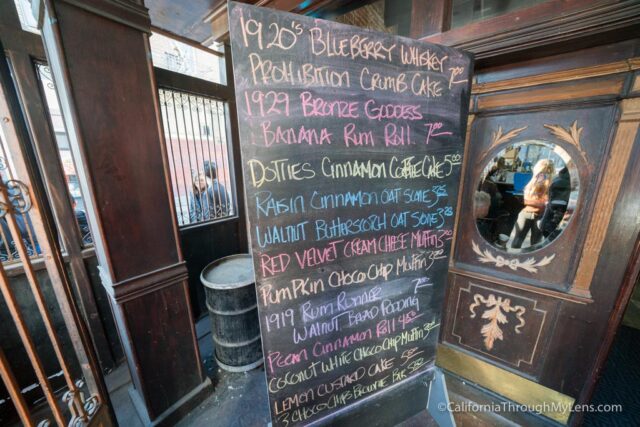 1920's Blueberry Whiskey
Prohibition Crumb Cake 7.00
1929 Bronze Goddess
Banana Rum Roll 7.00
Dotties Cinnamon Coffee Cake 5.00
Raisin Cinnamon Oat Scone
Walnut Butterscotch Oat Scone
Red Velvet Cream Cheese Muffin
Pumpkin Choco Chip Muffin
1919 Rum Runner 7.00
Walnut Bread Pudding
Pecan Cinnamon Roll 4.50
Coconut White Choco Chip Muffin
Lemon Custard Cake
3 Choco Chips Brownie Bar
©CaliforniaThroughMyLens.com